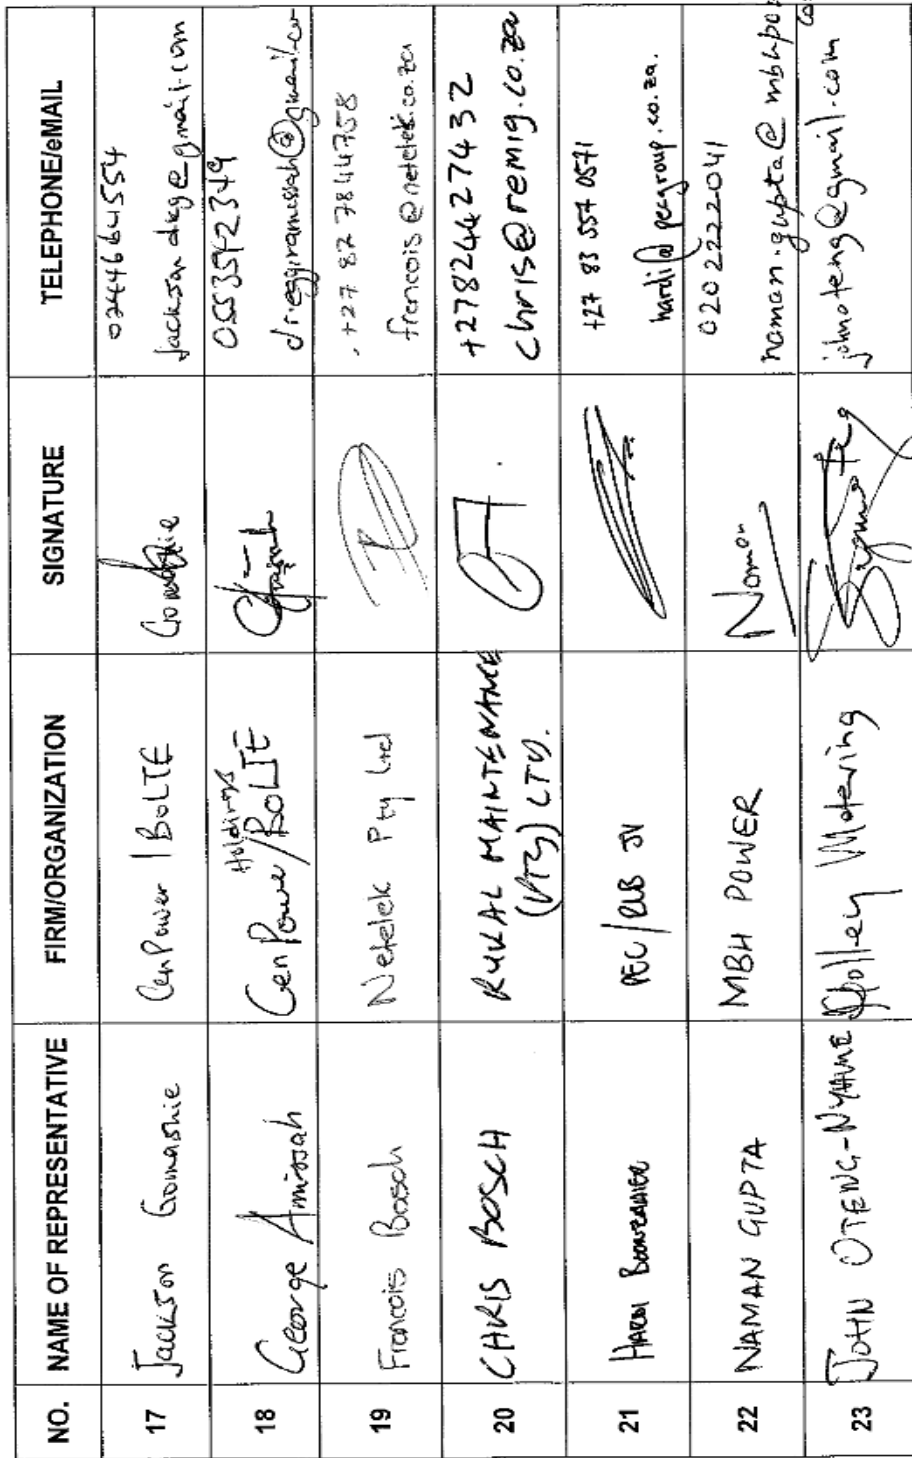 NO. NAME OF REPRESENTATIVE FIRM/ORGANIZATION SIGNATURE TELEPHONE/eMAIL
17 Jackson Gomashie CenPower / BOLTE Gomashie 0244664554
jacksondkg@gmail.com
18 George Amissah CenPower Holdings/BOLTE 0553542349
dreggiramissah@gmail.co
19 Francois Bosch Netelek Pty Ltd +27 82 7844758
francois@netelek.co.za
20 CHRIS BOSCH RURAL MAINTENANCE +27824427432
(PTY) LTD. chris@remig.co.za
21 HARDI BOONZAAIER PEC/RUB JV +27 83 557 0571
hardi@pecgroup.co.za.
22 NAMAN GUPTA MBH POWER Naman 0202222041
naman.gupta@mbhpo
23 JOHN OTENG-NYAME Metering johnoteng@gmail.com